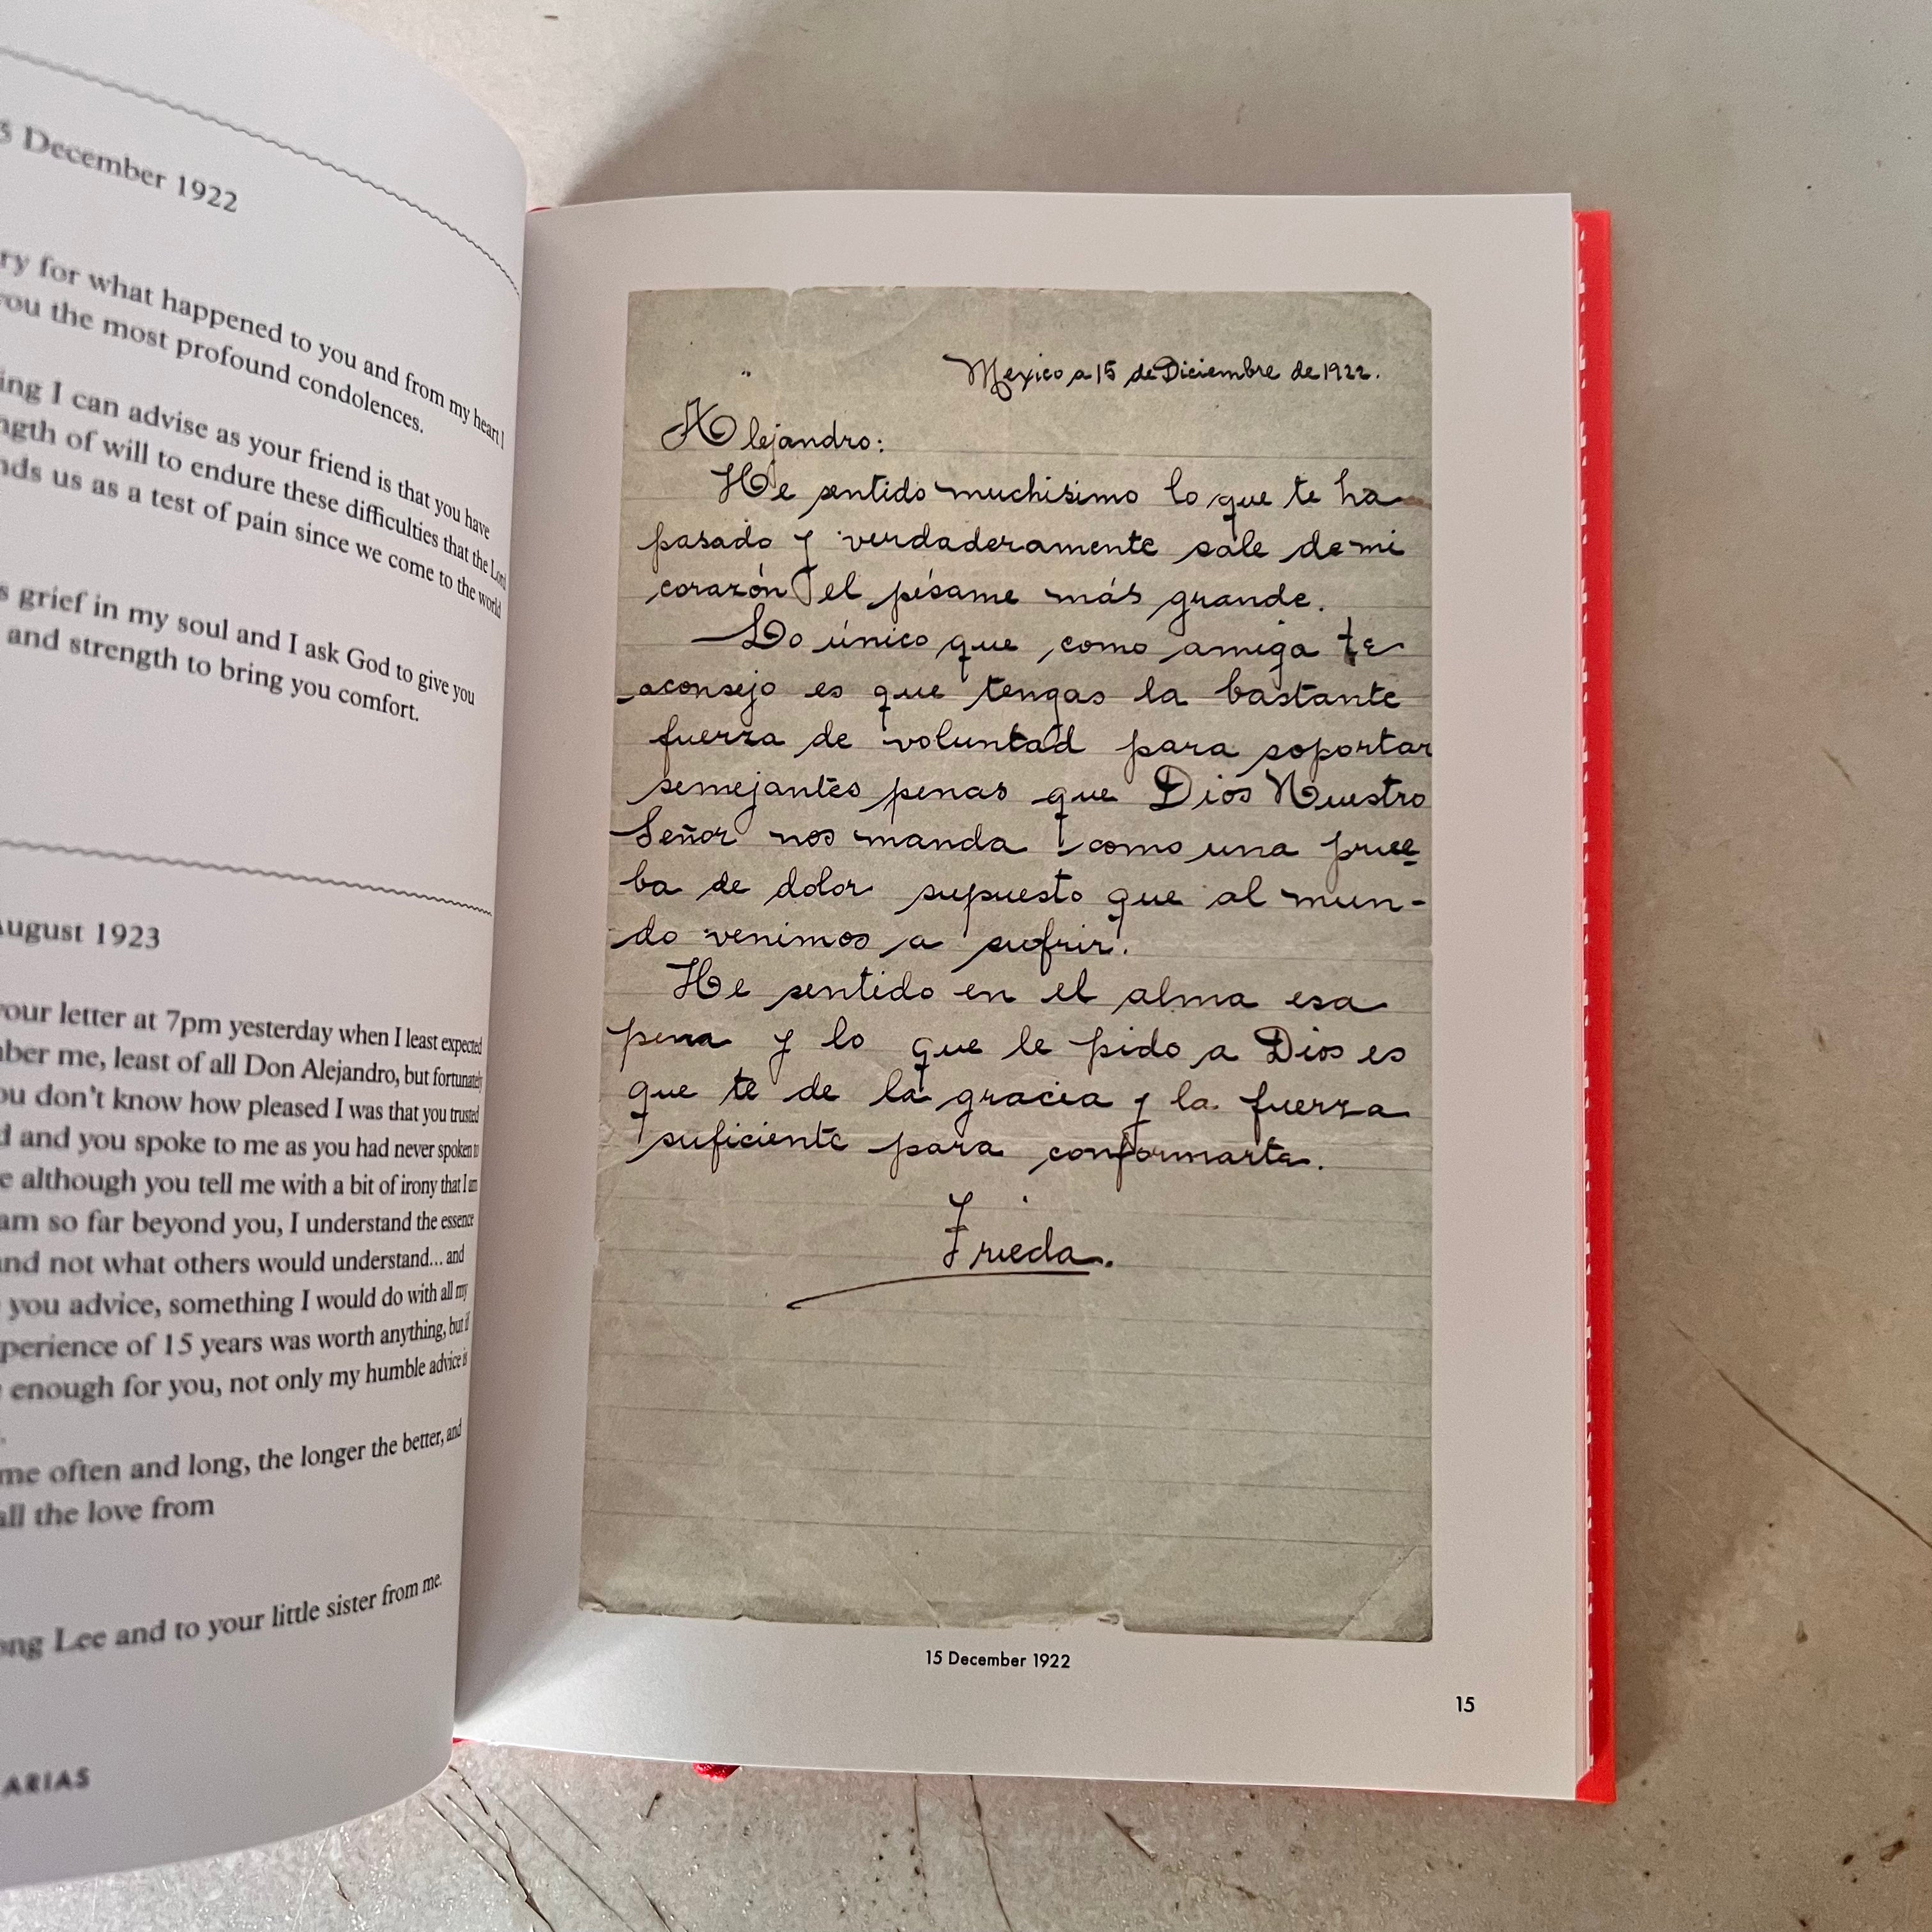 5 December 1922
ry for what happened to you and from my heart I
you the most profound condolences.
ing I can advise as your friend is that you have
ngth of will to endure these difficulties that the Lord
nds us as a test of pain since we come to the world
s grief in my soul and I ask God to give you
and strength to bring you comfort.
August 1923
your letter at 7pm yesterday when I least expected
ber me, least of all Don Alejandro, but fortunately
ou don't know how pleased I was that you trusted
d and you spoke to me as you had never spoken to
e although you tell me with a bit of irony that I am
am so far beyond you, I understand the essence
and not what others would understand... and
you advice, something I would do with all my
perience of 15 years was worth anything, but if
enough for you, not only my humble advice is
me often and long, the longer the better, and
all the love from
ong Lee and to your little sister from me.
ARIAS
Mexico a 15 de Diciembre de 1922.
Alejandro:
He sentido muchisimo lo que te ha
pasado y verdaderamente sale de mi
corazón el pésame más grande.
Lo único que como amiga te
aconsejo es que tengas la bastante
fuerza de voluntad para soportar
semejantes penas que Dios Nuestro
Señor nos manda como una prue
ba de dolor supuesto que al mun-
do venimos a sufrir.
He sentido en el alma esa
pena y lo que le pido a Dios es
que te de la gracia y la fuerza
suficiente para conformarte.
Frieda.
15 December 1922
15